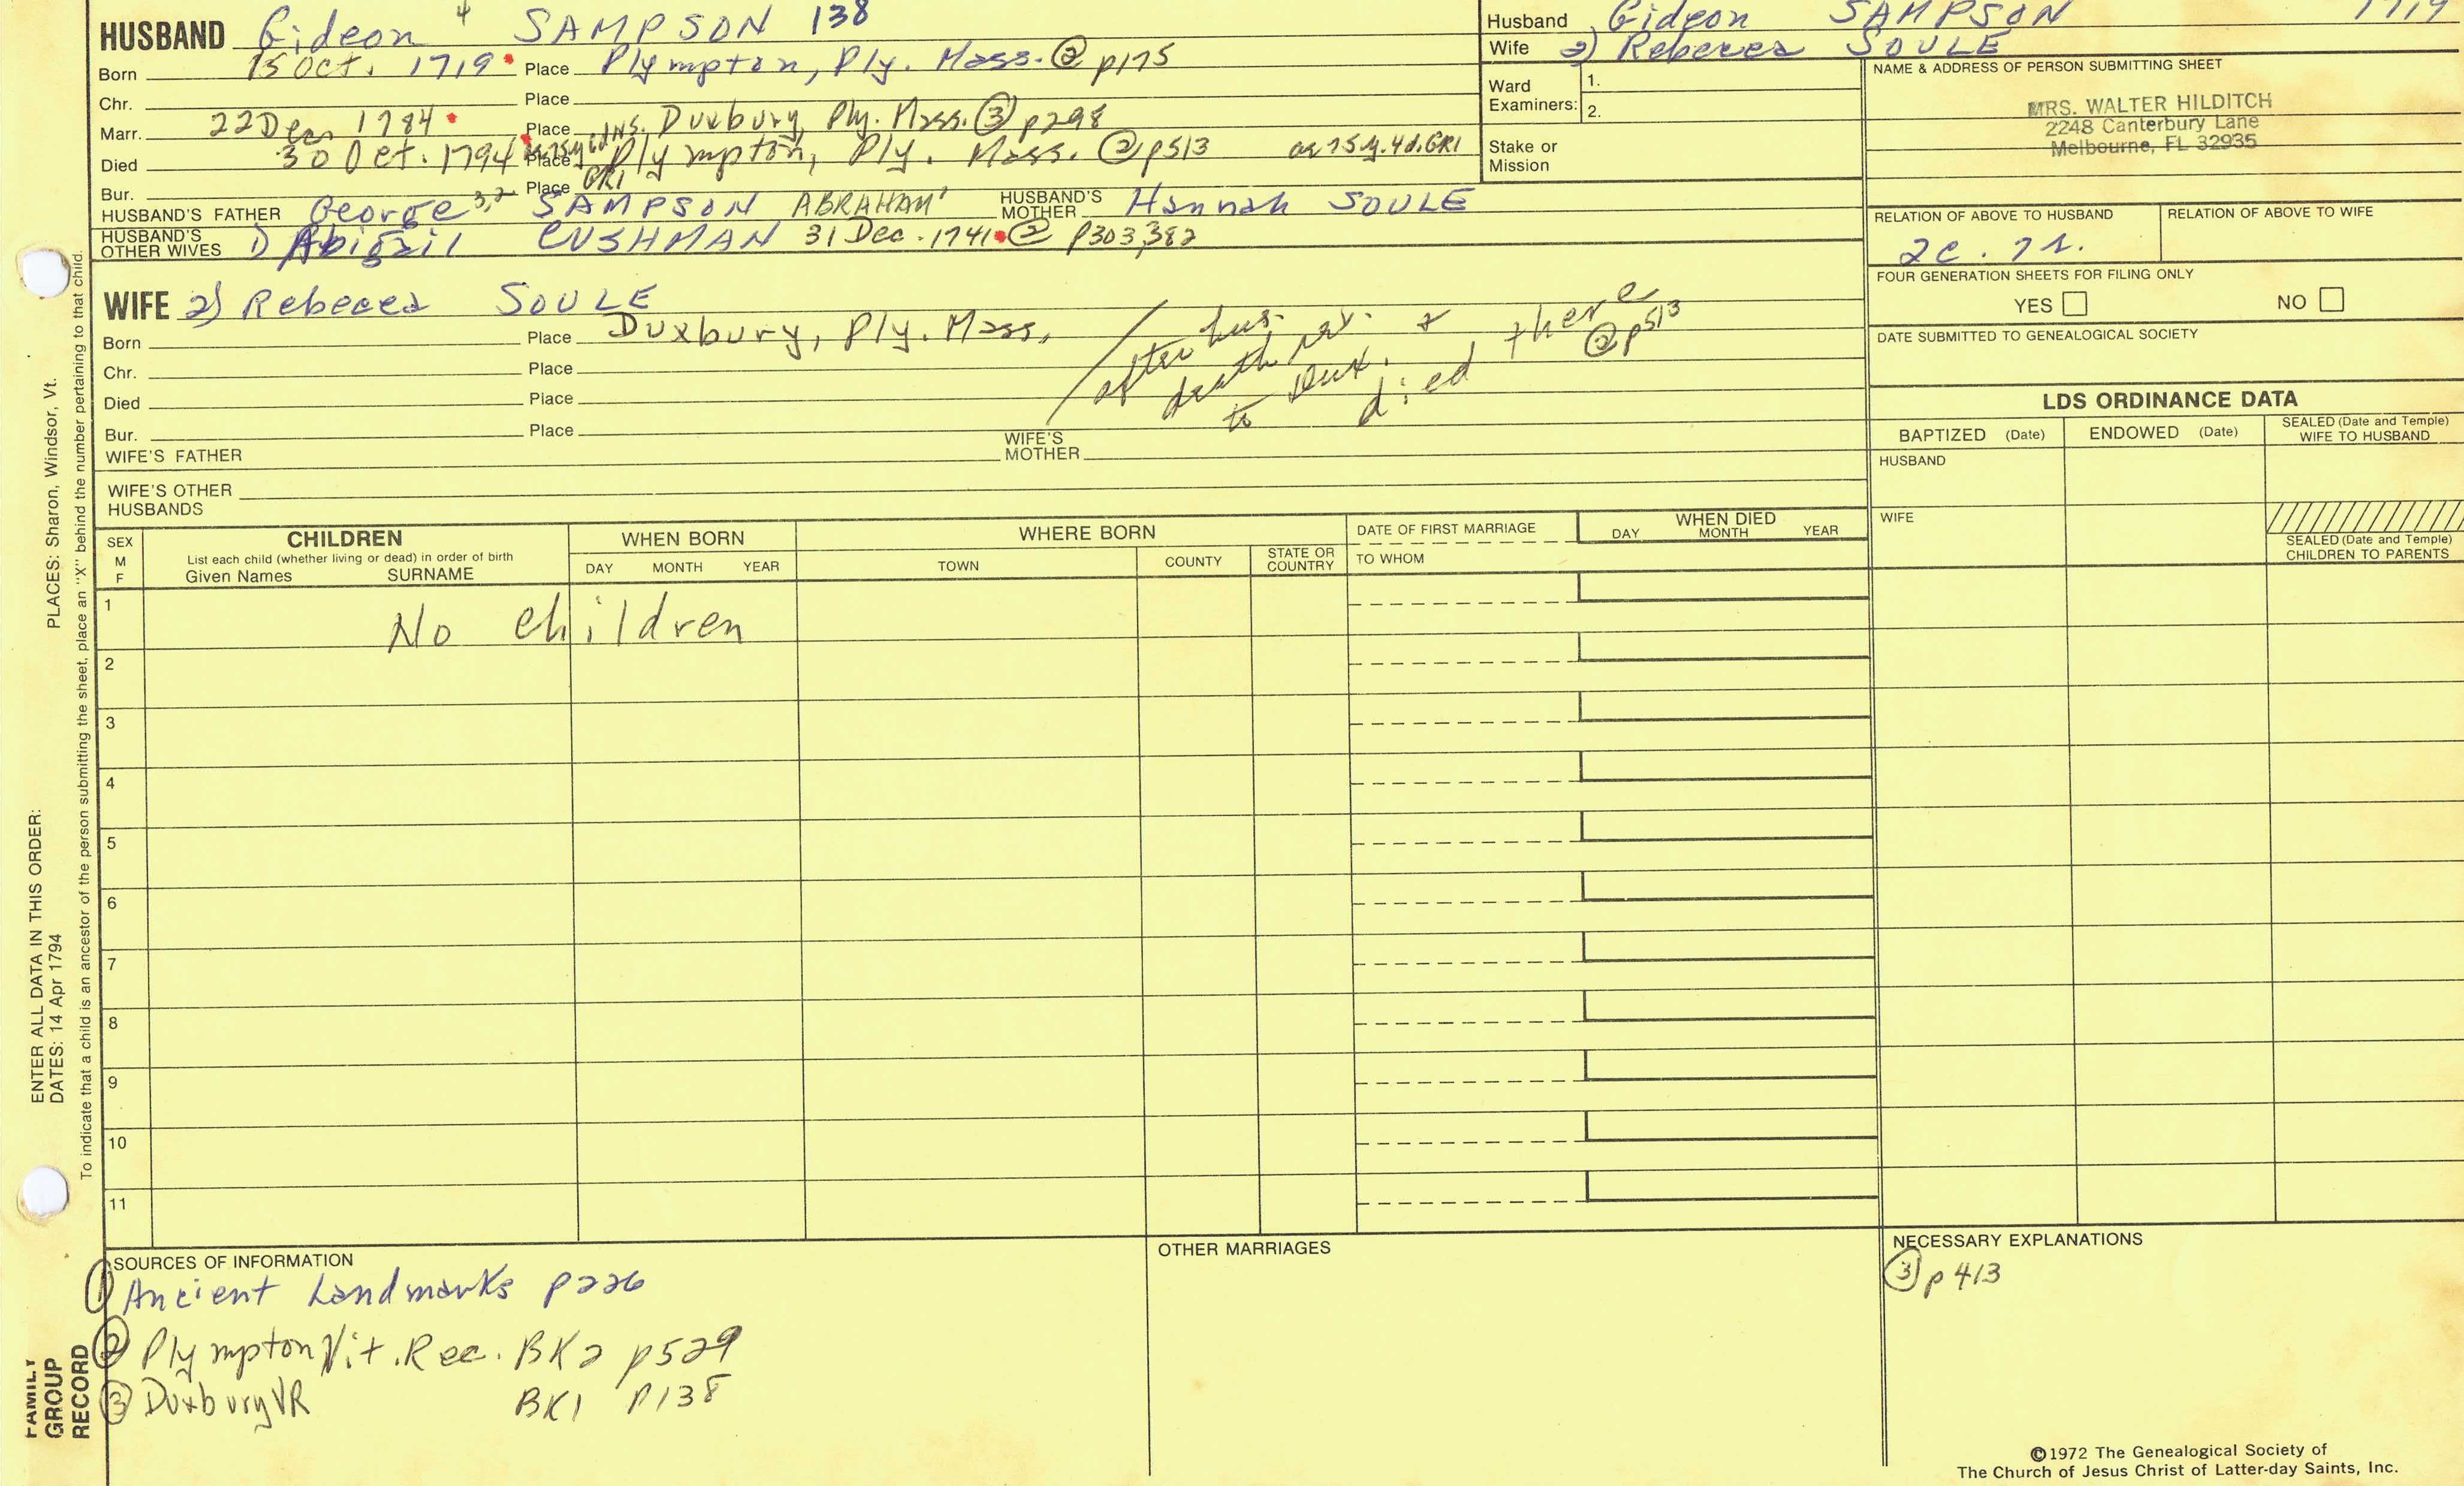 HUSBAND Gideon 4 SAMPSON 138
Born 15 Oct. 1719 Place Plympton, Ply. Mass. ② p175
Chr. Place
Marr. 22 Dec 1784 Place Duxbury Ply. Mass. ③ p298
Died 30 Oct. 1794 Place Plympton, Ply. Mass. ② p513 ae 75y. 4d. GR1
Bur. Place GR1
HUSBAND'S FATHER George 3,2 SAMPSON ABRAHAM' HUSBAND'S MOTHER Hannah SOULE
HUSBAND'S OTHER WIVES 1) Abigail CUSHMAN 31 Dec. 1741 ② p303,382
Husband Gideon SAMPSON 1719
Wife 2) Rebecca SOULE
Ward Examiners: 1.
2.
Stake or Mission
NAME & ADDRESS OF PERSON SUBMITTING SHEET
MRS. WALTER HILDITCH
2248 Canterbury Lane
Melbourne, FL 32935
RELATION OF ABOVE TO HUSBAND RELATION OF ABOVE TO WIFE
2c. 7r.
FOUR GENERATION SHEETS FOR FILING ONLY
YES NO
DATE SUBMITTED TO GENEALOGICAL SOCIETY
WIFE 2) Rebecca SOULE
Born Place Duxbury, Ply. Mass.
Chr. Place
Died Place
Bur. Place
after hus. death to Dux. & died there ② p513
WIFE'S FATHER WIFE'S MOTHER
WIFE'S OTHER HUSBANDS
LDS ORDINANCE DATA
BAPTIZED (Date) ENDOWED (Date) SEALED (Date and Temple) WIFE TO HUSBAND
HUSBAND
WIFE
SEALED (Date and Temple) CHILDREN TO PARENTS
SEX M F
CHILDREN
List each child (whether living or dead) in order of birth
Given Names SURNAME
WHEN BORN
DAY MONTH YEAR
WHERE BORN
TOWN COUNTY STATE OR COUNTRY
DATE OF FIRST MARRIAGE
TO WHOM
WHEN DIED
DAY MONTH YEAR
1 No children
2
3
4
5
6
7
8
9
10
11
SOURCES OF INFORMATION
① Ancient Landmarks p226
② Plympton Vit. Rec. BK2 p529
③ Duxbury VR BK1 p138
OTHER MARRIAGES
NECESSARY EXPLANATIONS
③ p413
©1972 The Genealogical Society of
The Church of Jesus Christ of Latter-day Saints, Inc.
FAMILY GROUP RECORD
ENTER ALL DATA IN THIS ORDER:
DATES: 14 Apr 1794 PLACES: Sharon, Windsor, Vt.
To indicate that a child is an ancestor of the person submitting the sheet, place an "X" behind the number pertaining to that child.